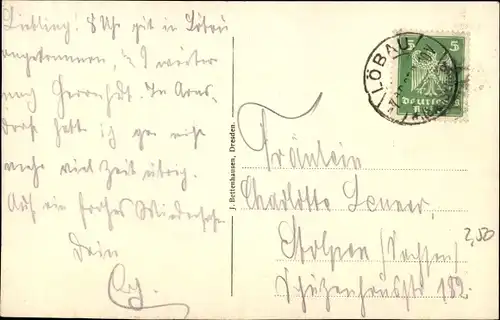 Liebling! 8 Uhr gut in Löbau
angekommen, 1/2 9 weiter
nach Herrnhut. In Arns-
dorf hatte ich gar nicht
mehr viel Zeit übrig.
Auf ein frohes Wiedersehn
Dein
J. Bettenhausen, Dresden.
LÖBAU
5 5
Deutsches
Fräulein
Charlotte
Stolpen (Sachsen)
Schützenhausstr 182.
2,50